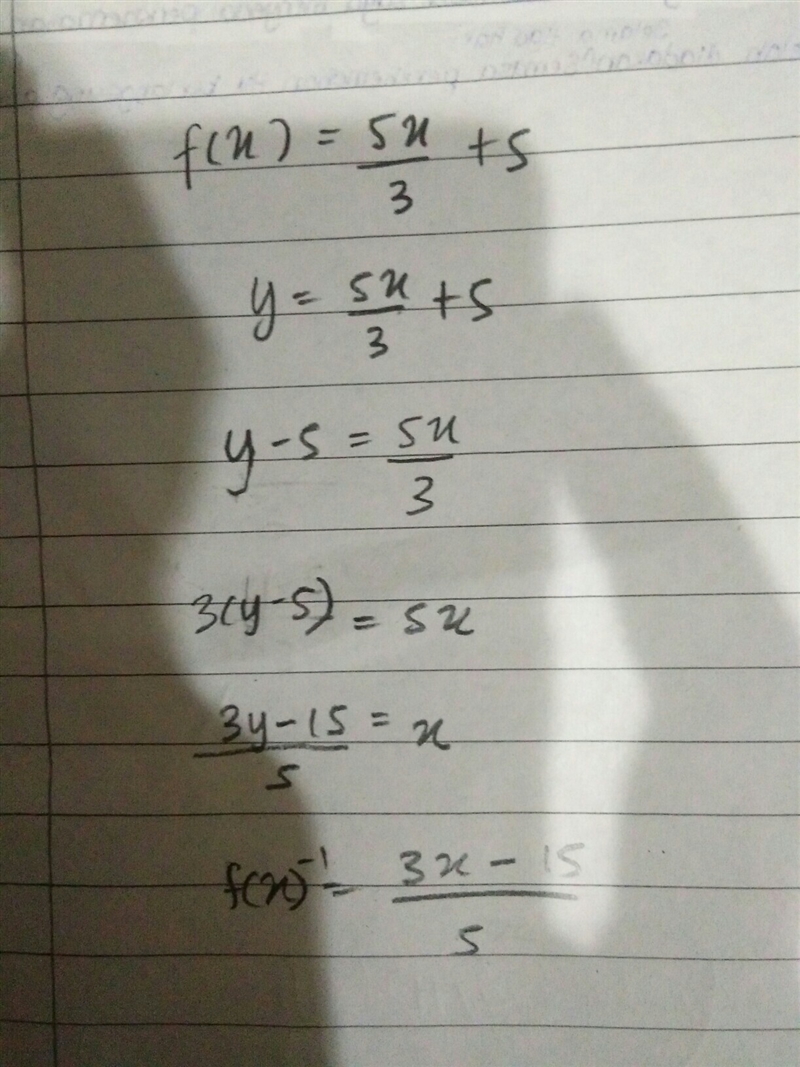 f(x) = 5x/3 + 5
y = 5x/3 + 5
y - 5 = 5x/3
3(y-5) = 5x
3y-15/5 = x
f(x)⁻¹ = 3x - 15/5